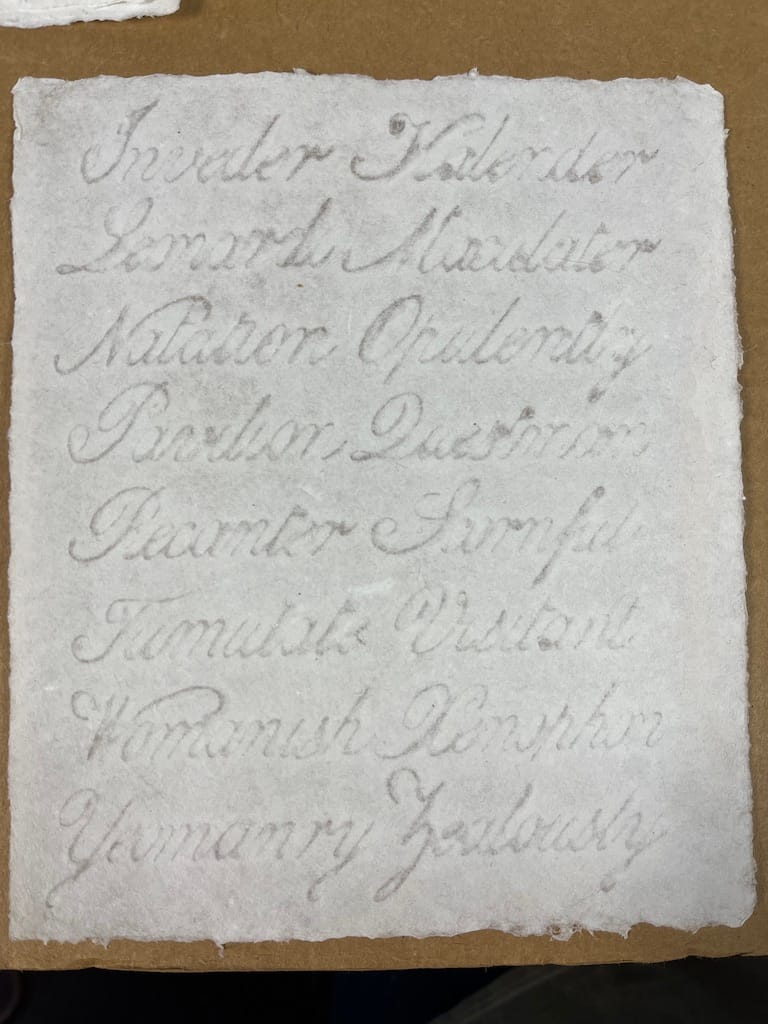 Invader Kalender
Lemark Mandator
Natation Opulently
Pavilion Questman
Recanter Scornful
Tumulate Visitant
Womanish Xenophon
Yeomanry Zealously